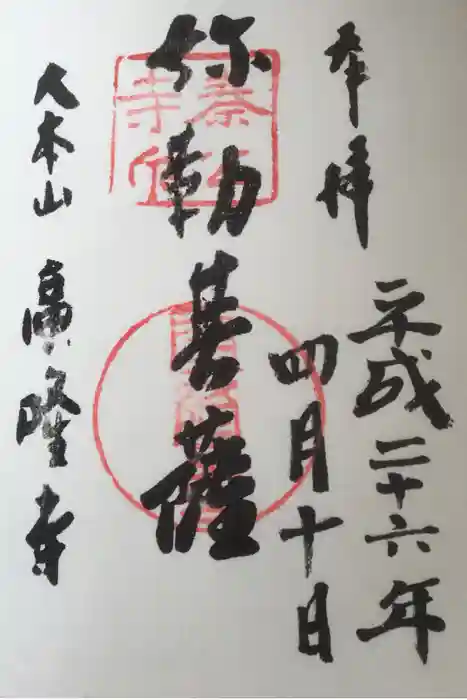 奉拝
平成二十六年
四月十日
弥勒菩薩
大本山 廣隆寺
秦公
寺印